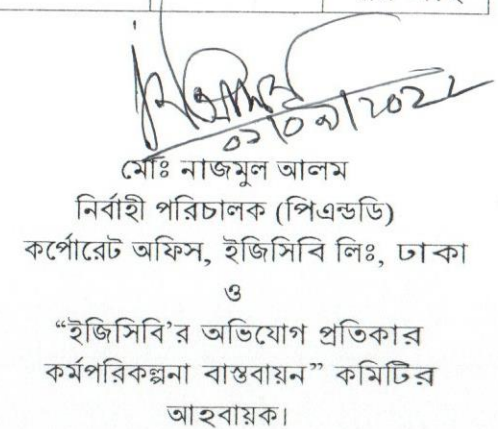 মোঃ নাজমুল আলম
নির্বাহী পরিচালক (পিএন্ডডি)
কর্পোরেট অফিস, ইজিসিবি লিঃ, ঢাকা
ও
“ইজিসিবি’র অভিযোগ প্রতিকার
কর্মপরিকল্পনা বাস্তবায়ন” কমিটির
আহবায়ক।